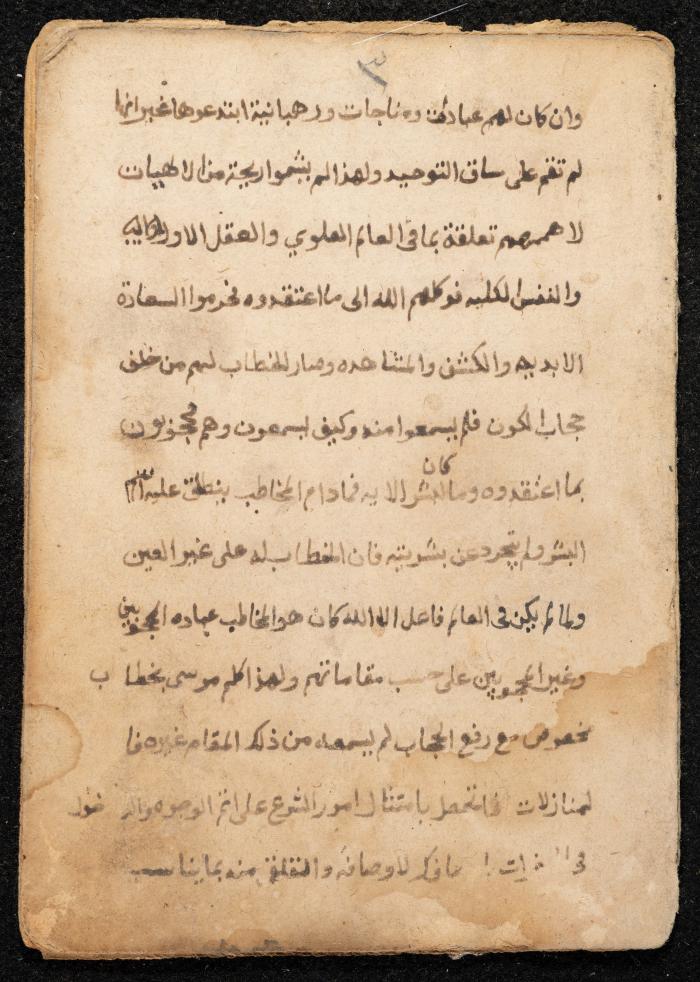 ٣
وان كان لهم عبادات ومناجات ورهبانية ابتدعوها غير انها
لم تقم على ساق التوحيد ولهذا لم يشموا ريحة من الالهيات
لا هممهم تعلقة بما فى العالم العلوي والعقل الاول
والنفس الكليه فوكلهم الله الى ما اعتقدوه فحرموا السعادة
الابديه والكشف والمشاهده وصار الخطاب لهم من خلف
حجاب الكون فلم يسمعوا منه وكيف يسمعون وهم محجوبون
بما اعتقدوه وما كان لبشر الايه فمادام المخاطب ينطلق عليه اسم
البشر ولم يتجرد عن بشريته فان الخطاب له على غير العين
ولما لم يكن فى العالم فاعل الا الله كان هو المخاطب عباده المحجوبين
وغير المحجوبين على حسب مقاماتهم ولهذا كلم موسى بخطاب
مخصوص مع رفع الحجاب لم يسمعه من ذلك المقام غيره فا
لمنازلات فا تحصل بامتثال امور الشرع على اتم الوجوه
فى لاوصافه والتقلق منه بما يناسب